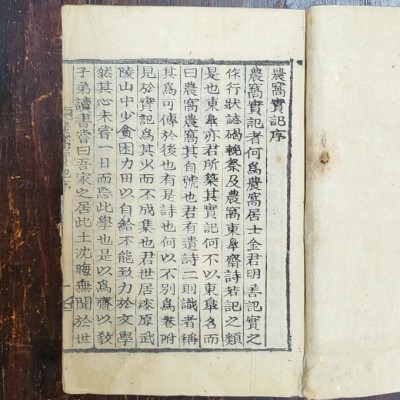 農窩實記序
農窩實記者何爲農窩居士金君明善記實之
作行狀誌碣輓祭及農窩東皐齋詩若記之類
是也東皐亦君所築其實記何不以東皐名而
曰農窩農窩其自號也君有遺詩二則識者稱
其爲可傳於後也有是詩也何以不別爲卷附
見於實記爲其少而不成集也君世居漆原武
陵山中少貪困力田以自給不能致力於文學
然其心未嘗一日而忘此學也是以爲齋以敎
子弟讀書嘗曰吾家之居此土沈晦無聞於世